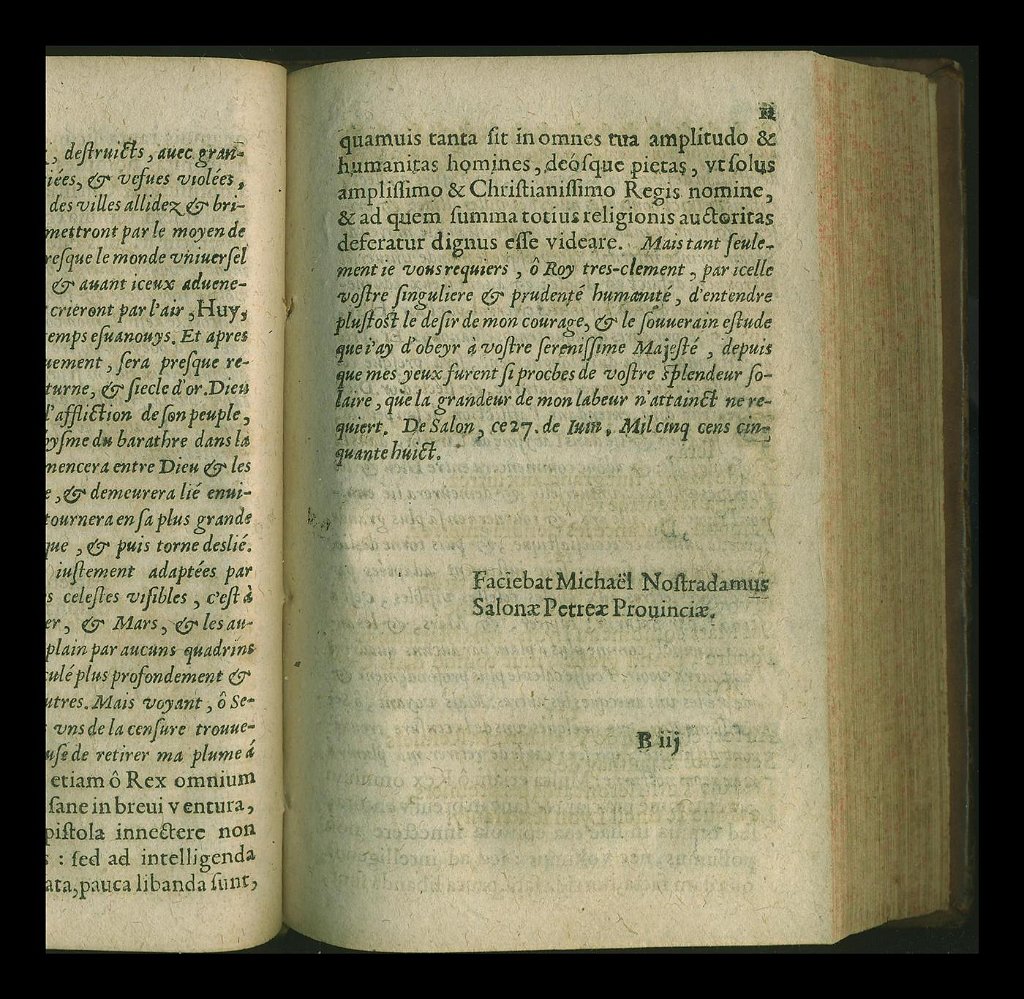 , destruicts, auec gran-
iées, & vefues violées,
des villes allidez & bri-
mettront par le moyen de
resque le monde vniuersel
& auant iceux aduene-
crieront par l'air, Huy,
emps esuanouys. Et apres
uement, sera presque re-
turne, & siecle d'or. Dieu
l'affliction de son peuple,
ysme du barathre dans la
mencera entre Dieu & les
e, & demeurera lié enui-
tournera en sa plus grande
que, & puis torne deslié.
iustement adaptées par
s celestes visibles, c'est à
er, & Mars, & les au-
plain par aucuns quadrins
culé plus profondement &
utres. Mais voyant, ô Se-
vns de la censure trouue-
use de retirer ma plume á
etiam ô Rex omnium
sane in breui ventura,
pistola innectere non
s : sed ad intelligenda
ata, pauca libanda sunt,
quamuis tanta sit in omnes tua amplitudo &
humanitas homines, deósque pietas, vt solus
amplissimo & Christianissimo Regis nomine,
& ad quem summa totius religionis auctoritas
deferatur dignus esse videare. Mais tant seule-
ment ie vous requiers, ô Roy tres-clement, par icelle
vostre singuliere & prudente humanité, d'entendre
plustost le desir de mon courage, & le souuerain estude
que i'ay d'obeyr à vostre serenissime Majesté, depuis
que mes yeux furent si proches de vostre splendeur so-
laire, que la grandeur de mon labeur n'attainct ne re-
quiert. De Salon, ce 27. de Iuin, Mil cinq cens cin-
quante huict.
Faciebat Michaël Nostradamus
Salonæ Petreæ Prouinciæ.
B iij